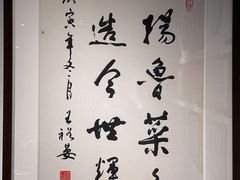 揚魯菜
造今世輝
庚寅年冬月 王裕晏